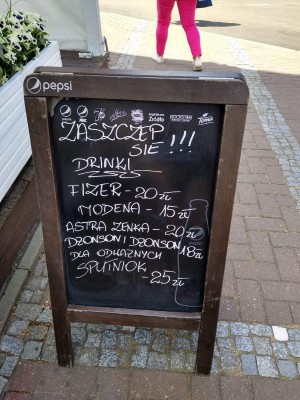 pepsi
Źródło
ROCKSTAR
Toma
ZASZCZEP
SIĘ !!!
DRINKI
FIZER - 20 zł
MODENA - 15 zł
ASTRA ZENKA - 20 zł
DŻONSON I DŻONSON 18 zł
DLA ODWAŻNYCH
SPUTNIOK
- 25 zł